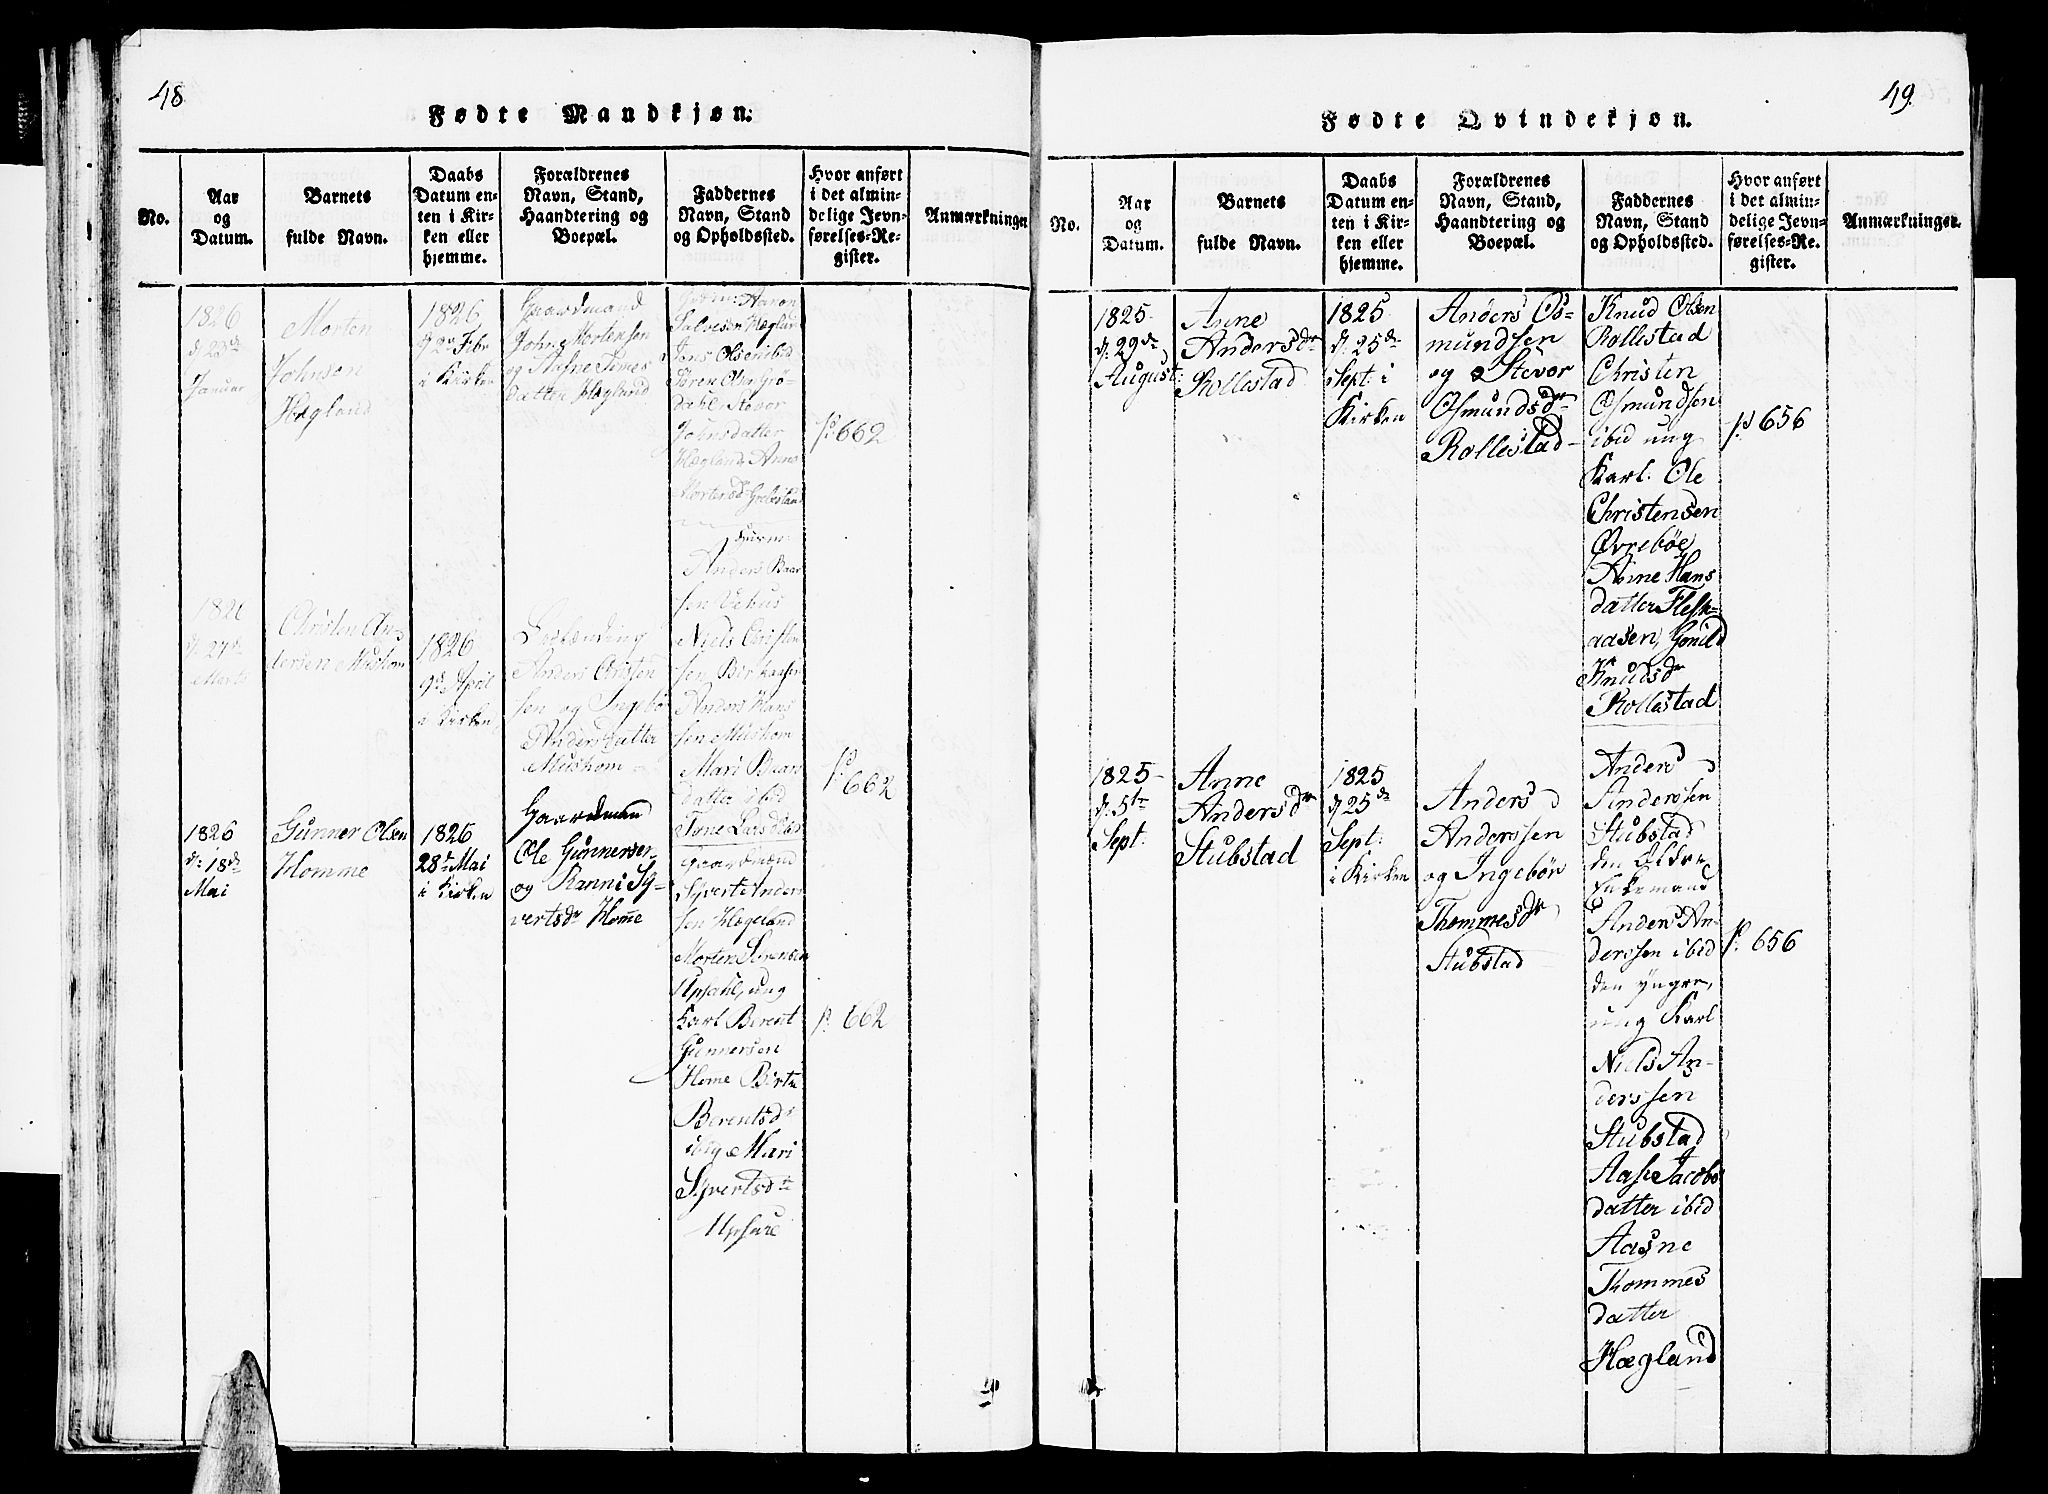 48
Fødte Mandkjøn.
No.
Aar
og
Datum.
Barnets
fulde Navn.
Daabs
Datum en-
ten i Kir-
ken eller
hjemme.
Forældrenes
Navn, Stand,
Haandtering og
Boepæl.
Faddernes
Navn, Stand
og Opholdssted.
Hvor anført
i det almin-
delige Jevn-
førelses-Re-
gister.
Anmærkninger
1826
d: 23de
Januar
Morten
Johnsen
Hægland
1826
Febr
i Kirken
Gaardmand
John Mortensen
og Aasne Tømes
datter Hægland
Aaron
Salvesen Hæglan
Jens Olsen ibid
Søren Grø-
dahl Stevor
Johnsdatter
Hægland Anne
Mortensd
p: 662
27de
Marts
Christen An-
dersen Mushom
1826
9d April
i Kirken
Anders Christen
sen og Ingebor
Anders datter
Mushom
Anders Baar
sen Vehus
Niels Christen
sen
Anders Hans
sen Mushom
Mari Baars
datter ibid
p: 662
1826
d: 18de
Mai
Gunner Olsen
Homme
1826
28de Mai
i Kirken
Gaardmand
Ole Gunnersen
og Ranni Sy-
vertsdr Home
Gaardmænd
Syvert Anders
sen Hægeland
Morten Sørensen
Upsahl, ung
Karl Berent
Gunnersen
Home Birte
Berentsdr
Mari
Syvertsdtr
p: 662
49.
Fødte Qvindekjøn.
No.
Aar
og
Datum.
Barnets
fulde Navn.
Daabs
Datum en-
ten i Kir-
ken eller
hjemme.
Forældrenes
Navn, Stand,
Haandtering og
Boepæl.
Faddernes
Navn, Stand
og Opholdssted.
Hvor anført
i det almin-
delige Jevn-
førelses-Re-
gister.
Anmærkninger.
1825
d: 29de
August:
Anne
Andersdr
Rollestad
1825
d: 25de
Sept: i
Kirken
Anders Os-
mundsen
og Stevor
Osmundsdr
Rollestad
Knud Olsen
Rollestad
Christen
Osmundsen
ibid ung
Karl: Ole
Christensen
Øvrebøe
Anne Hans
datter Flesk-
aasen, Gonild
Knudsdr
Rollestad
p: 656
1825
d: 5te
Sept:
Anne
Andersdr
Stubstad
1825
d 25de
Sept:
i Kirken
Anders
Anderssen
og Ingebør
Thommesdr
Stubstad
Anders
Anderssen
Stubstad
den Eldre
Enkemand
Anders An-
derssen ibid
den yngre,
ung Karl
Niels An-
derssen
Stubstad
Aase Jacobs
datter ibid
Aasne
Thommes
datter
Hægland
p: 656